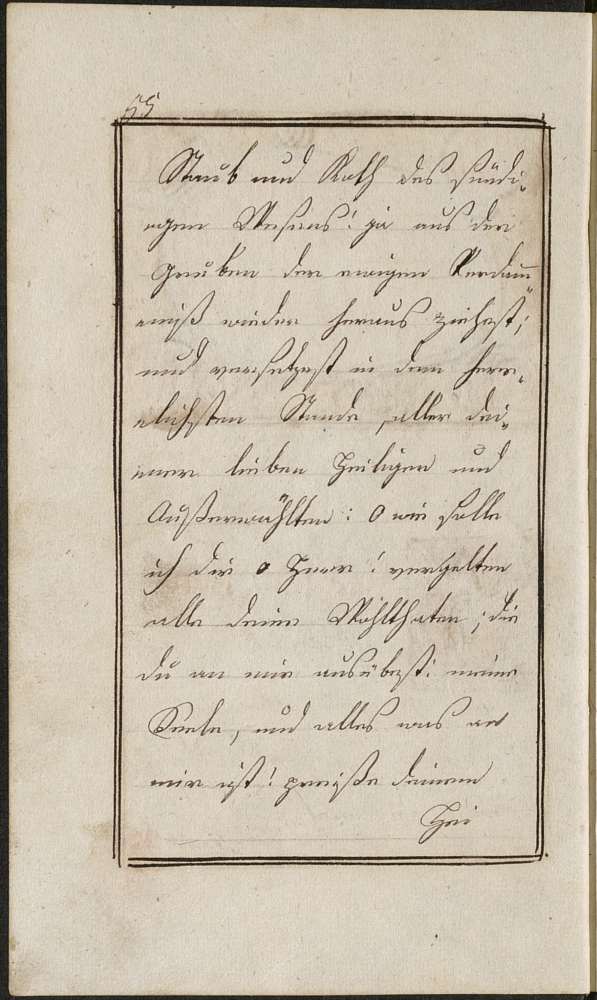 55
Staub und Koth des sündi-
gen Wesens! ja aus der
Gruben der ewigen Verdam̄-
niß wieder heraus ziehest;
und versetzest in dem herr-
lichsten Stande, aller dei-
ner lieben Heiligen und
Außerwählten: O wie solle
ich dir o Herr! vergelten
alle deine Wohlthaten; die
du an mir ausübest: meine
Seele, und alles was an
mir ist! preiße deinem
Hei